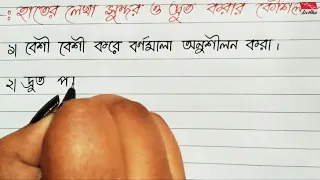 হাতের লেখা সুন্দর ও দ্রুত করার কৌশল
১) বেশী বেশী করে বর্ণমালা অনুশীলন করা।
২) দ্রুত প